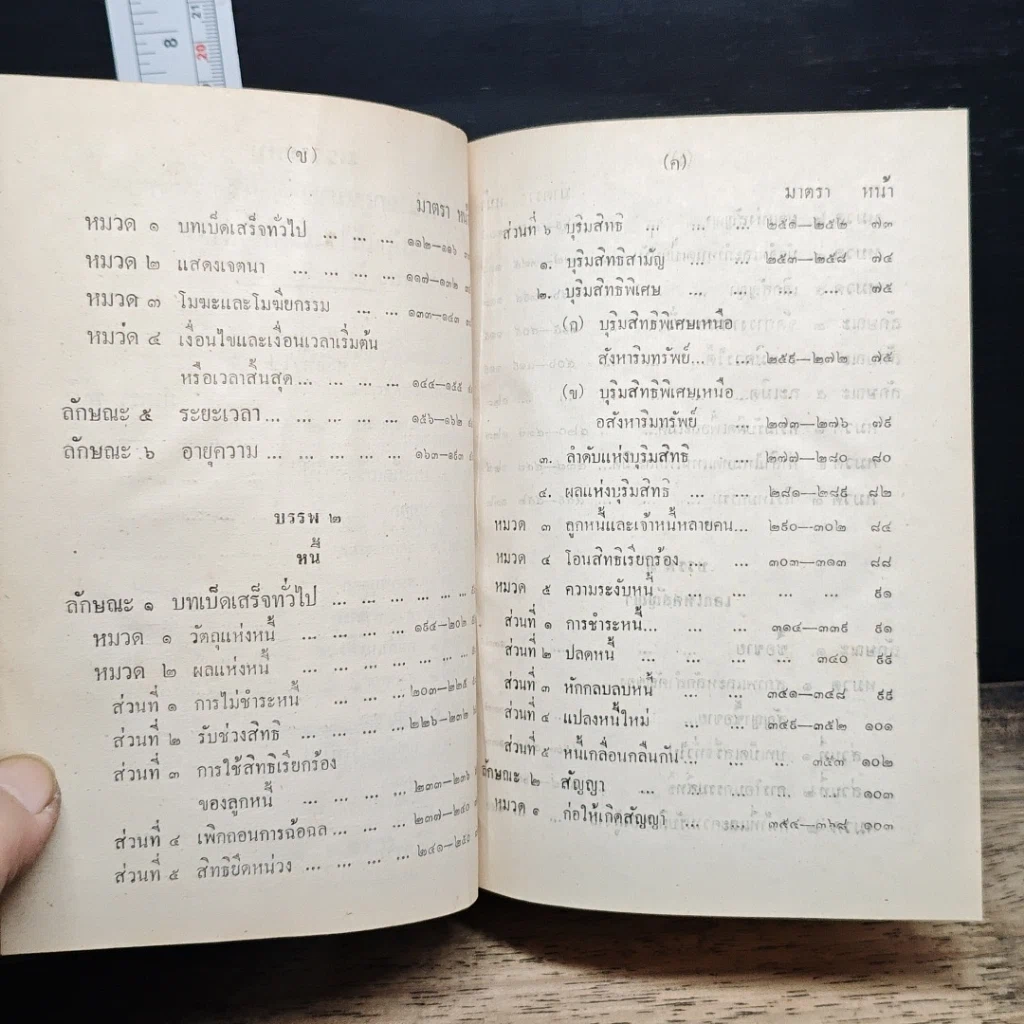 (ข)
มาตรา หน้า
หมวด ๑ บทเบ็ดเสร็จทั่วไป ... ... ... ๑๑๒—๑๑๖
หมวด ๒ แสดงเจตนา ... ... ... ... ๑๑๗—๑๓๒
หมวด ๓ โมฆะและโมฆียกรรม ... ... ๑๓๓—๑๔๓
หมวด ๔ เงื่อนไขและเงื่อนเวลาเริ่มต้น
หรือเวลาสิ้นสุด ... ... ... ... ๑๔๔—๑๕๕
ลักษณะ ๕ ระยะเวลา ... ... ... ... ๑๕๖—๑๖๒
ลักษณะ ๖ อายุความ ... ... ... ... ๑๖๓—๑๙๓
บรรพ ๒
หนี้
ลักษณะ ๑ บทเบ็ดเสร็จทั่วไป ... ... ... ... ...
หมวด ๑ วัตถุแห่งหนี้ ... ... ... ... ๑๙๔—๒๐๒
หมวด ๒ ผลแห่งหนี้ ... ... ... ... ... ...
ส่วนที่ ๑ การไม่ชำระหนี้ ... ... ... ๒๐๓—๒๒๕
ส่วนที่ ๒ รับช่วงสิทธิ ... ... ... ... ๒๒๖—๒๓๒
ส่วนที่ ๓ การใช้สิทธิเรียกร้อง
ของลูกหนี้ ... ... ... ... ๒๓๓—๒๓๖
ส่วนที่ ๔ เพิกถอนการฉ้อฉล ... ... ... ๒๓๗—๒๔๐
ส่วนที่ ๕ สิทธิยึดหน่วง ... ... ... ... ๒๔๑—๒๕๐
(ค)
มาตรา หน้า
ส่วนที่ ๖ บุริมสิทธิ ... ... ... ๒๕๑—๒๕๒ ๗๓
๑. บุริมสิทธิสามัญ ... ... ๒๕๓—๒๕๘ ๗๔
๒. บุริมสิทธิพิเศษ ... ... ... ... ๗๕
(ก) บุริมสิทธิพิเศษเหนือ
สังหาริมทรัพย์... ... ... ๒๕๙—๒๗๒ ๗๕
(ข) บุริมสิทธิพิเศษเหนือ
อสังหาริมทรัพย์ ... ... ๒๗๓—๒๗๖ ๗๙
๓. ลำดับแห่งบุริมสิทธิ ... ... ๒๗๗—๒๘๐ ๘๐
๔. ผลแห่งบุริมสิทธิ ... ... ๒๘๑—๒๘๙ ๘๒
หมวด ๓ ลูกหนี้และเจ้าหนี้หลายคน... ... ๒๙๐—๓๐๒ ๘๔
หมวด ๔ โอนสิทธิเรียกร้อง ... ... ๓๐๓—๓๑๓ ๘๘
หมวด ๕ ความระงับหนี้ ... ... ... ... ๙๑
ส่วนที่ ๑ การชำระหนี้... ... ... ๓๑๔—๓๓๙ ๙๑
ส่วนที่ ๒ ปลดหนี้ ... ... ... ... ๓๔๐ ๙๙
ส่วนที่ ๓ หักกลบลบหนี้ ... ... ๓๔๑—๓๔๘ ๙๙
ส่วนที่ ๔ แปลงหนี้ใหม่ ... ... ๓๔๙—๓๕๒ ๑๐๑
ส่วนที่ ๕ หนี้เกลื่อนกลืนกัน ... ... ... ๓๕๓ ๑๐๒
ลักษณะ ๒ สัญญา ... ... ... ... ... ๑๐๓
หมวด ๑ ก่อให้เกิดสัญญา ... ... ... ๓๕๔—๓๖๘ ๑๐๓
8
20
21